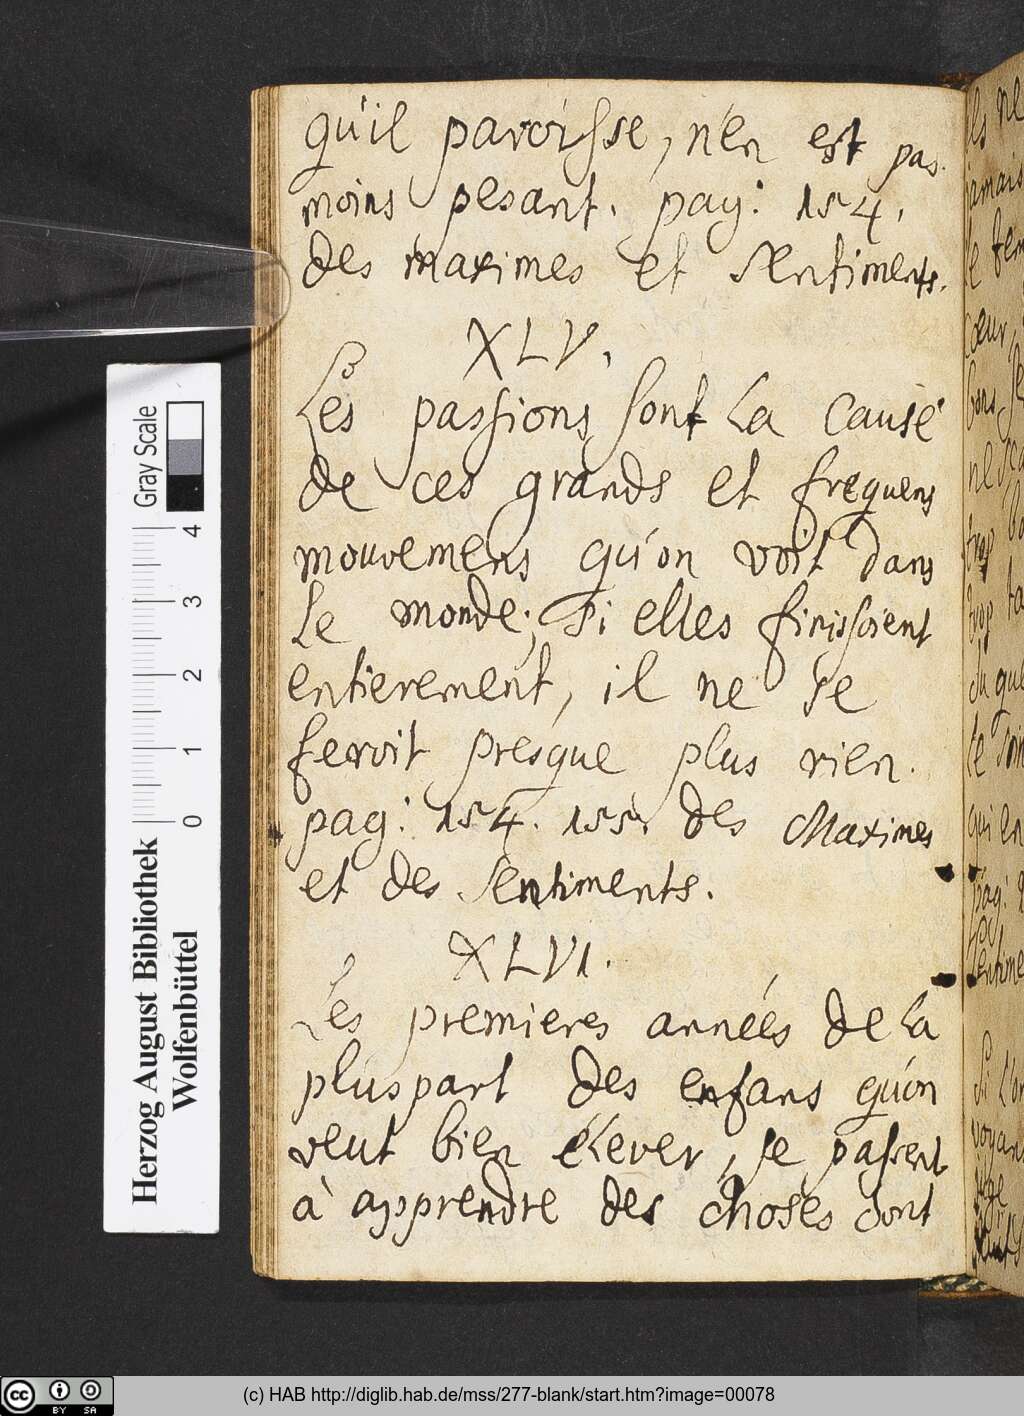 qu'il paroisse, n'en est pas
moins pesant. pag: 154.
des maximes et sentiments.
XLV.
Les passions sont La cause
de ces grands et frequens
mouvemens qu'on voit dans
Le monde; si elles finissoient
entierement, il ne se
feroit presque plus rien.
pag: 154. 155. des Maximes
et des sentiments.
XLVI.
Les premieres années de La
pluspart des enfans qu'on
veut bien éLever, se passent
à apprendre des choses dont
Gray Scale
4
3
2
1
0
Herzog August Bibliothek
Wolfenbüttel
cc BY SA
(c) HAB http://diglib.hab.de/mss/277-blank/start.htm?image=00078